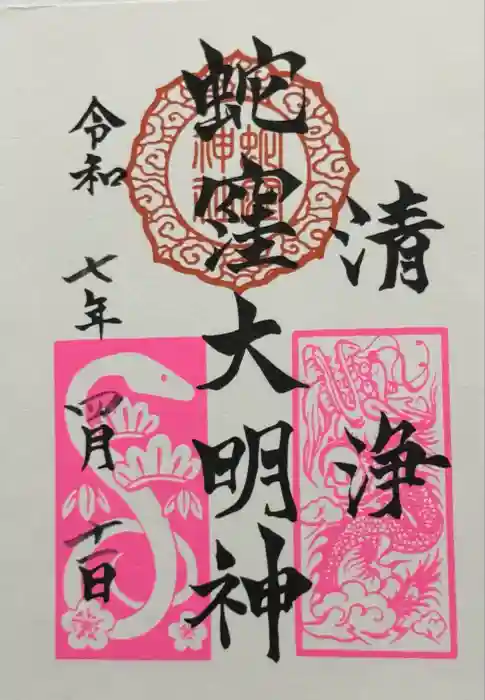 清浄
蛇窪大明神
蛇窪神社
令和七年四月十二日